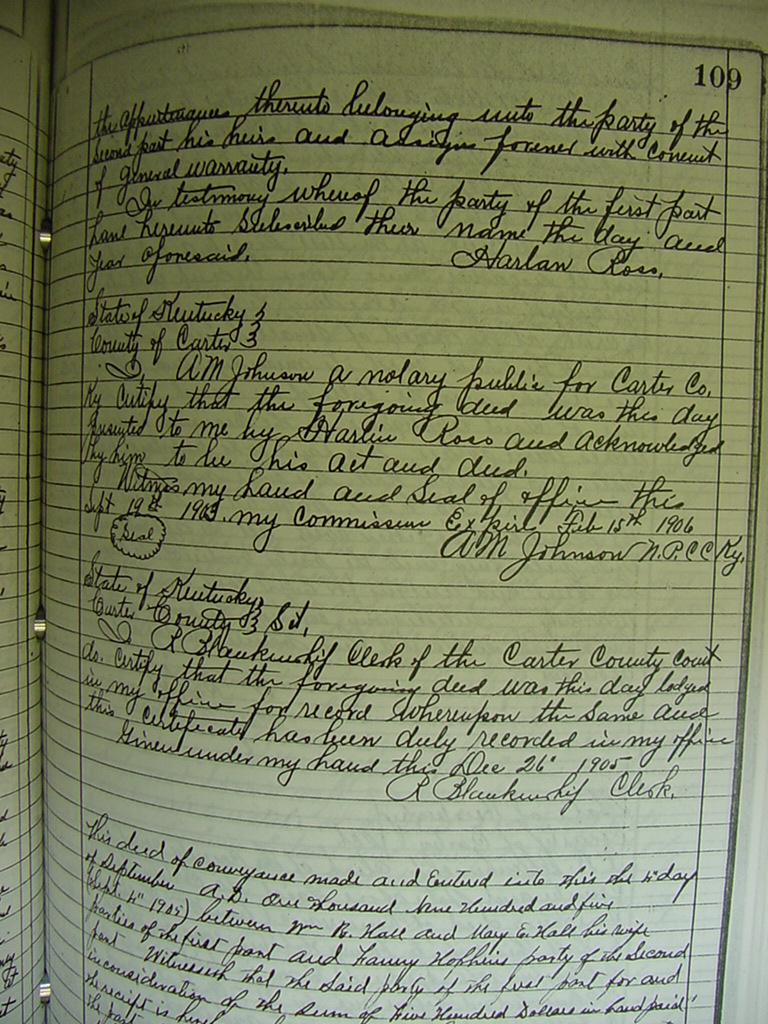 109
the appurtenances thereunto belonging unto the party of the
second part his heirs and assigns forever with Convent
of general warranty.
In testimony whereof the party of the first part
have hereunto Subscribed their name the day and
year aforesaid. Harlan Ross.
State of Kentucky }
County of Carter }
I, AM Johnson a notary public for Carter Co.
Ky Certify that the foregoing deed was this day
presented to me by Harlin Ross and acknowledged
by him to be his act and deed.
Witness my hand and Seal of office this
Sept 19th 1905. my Commission Expire Feb 15th 1906
Seal AM Johnson N.P.C.C Ky.
State of Kentucky }
Carter County } Sct.
I, R Blankenship Clerk of the Carter County Court
do. Certify that the foregoing deed was this day lodged
in my office for record whereupon the Same and
this Certificate has been duly recorded in my office
Given under my hand this Dec 26" 1905
R Blankenship Clerk.
This deed of conveyance made and Entered into this the 4" day
of September A.D. One thousand Nine Hundred and five
(Sept. 4" 1905) between Wm R. Hall and May E. Hall his wife
parties of the first part and Fanny Hopkins party of the Second
part Witnesseth that the said party of the first part for and
in consideration of the Sum of Five Hundred Dollars in hand paid
the receipt is
the part